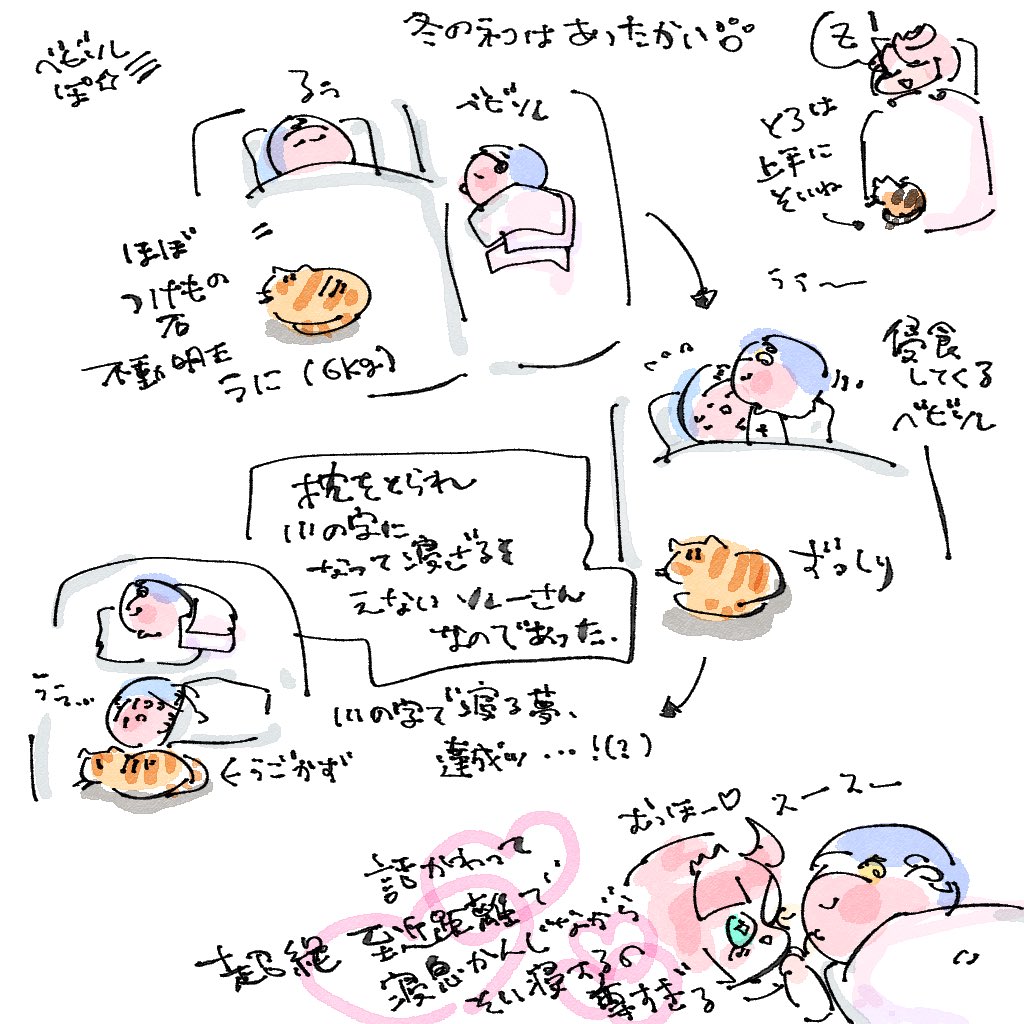 冬のネコはあったかい
べビソル
ぽ☆
るっ
ベビソル
Z!
とろは
上手に
そいね
ほぼ
つけもの
石
不動明王
うに(6kg)
うぅ〜
侵食
してくる
ベビソル
ずっしり
枕をとられ
川の字に
なって寝ざるを
えないソルーさん
なのであった.
うぅ...
←うごかず
川の字で寝る夢、
達成ッ…!(?)
むっほー♡
スースー
話かわって
超絶 至近距離で
寝息かんじながら
そい寝するの
尊すぎる